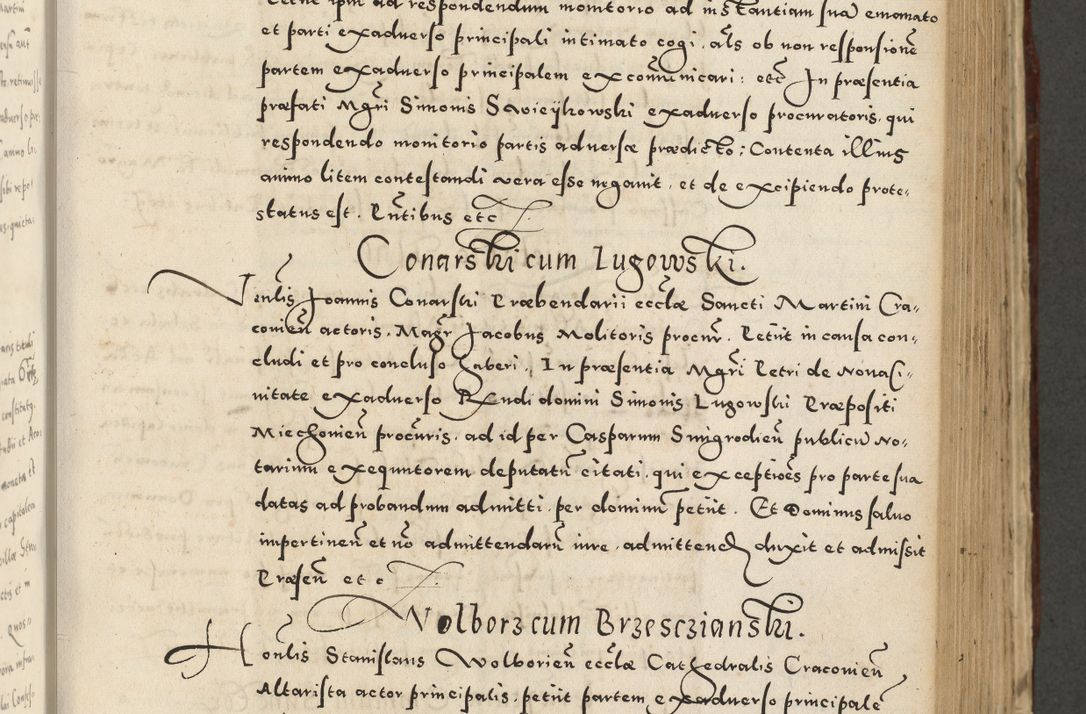 et parti exaduerso principali intimato cogi, al̃s ob non responsionẽ
partem exaduerso principalem excom̃unicari: etc̃ In præsentia
præfati Mgr̃i Simonis Swieÿkowski exaduerso procuratoris, qui
respondendo monitorio partis aduersæ prædicto; Contenta illius
animo litem contestandi vera esse negauit, et de excipiendo prote-
status est. Pñtibus etc
Conarski cum Lugowski.
Venlĩs Joannis Conarski Præbendarii eccłæ Sancti Martini Cra-
couieñ actoris, Magr̃ Jacobus Molitoris procur̃. Petiit in causa con-
cludi et pro concluso haberi, In præsentia Mgr̃i Petri de Noua Ci-
uitate exaduerso Rx̃ndi domini Simonis Lugowski Præpositi
Miechouieñ procũris, ad id per Casparum Smigrodieñ publicũ No-
tarium exequutorem deputatũ citati, qui exceptiões pro parte sua
datas ad probandum admitti per dominũ petiit. Et Dominus saluo
impertineñ et nõ admittendarũ iure, admittend duxit et admisit
Præseñ et c
Wolborz cum Brzesczianski.
Honlĩs Stanislaus Wolborieñ eccłæ Cathedralis Cracouieñ
Altarista actor principalis, petiit partem exaduerso principalẽ